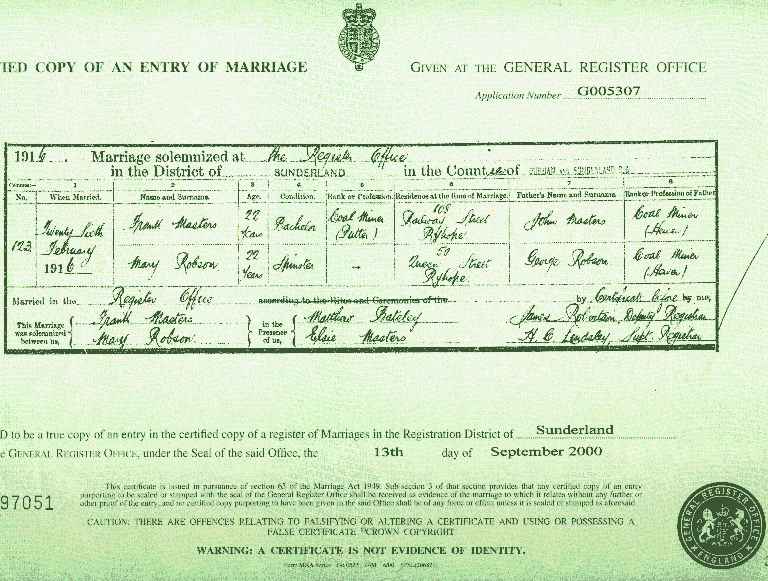 IED COPY OF AN ENTRY OF MARRIAGE
GIVEN AT THE GENERAL REGISTER OFFICE
Application Number G005307
1916 Marriage solemnized at the Register Office
in the District of SUNDERLAND in the Counties of DURHAM SUNDERLAND
Columns:— 1 2 3 4 5 6 7 8
No. When Married. Name and Surname. Age. Condition. Rank or Profession. Residence at the time of Marriage. Father's Name and Surname. Rank or Profession of Father
123 Twenty Sixth February 1916
Frank Masters 22 Years Bachelor Coal Miner (Putter) 108 Railway Street Ryhope John Masters Coal Miner (Hewer)
Mary Robson 22 Years Spinster — 50 Queen Street Ryhope George Robson Coal Miner (Hewer)
Married in the Register Office according to the Rites and Ceremonies of the by Certificate before by me,
This Marriage was solemnized between us, Frank Masters Mary Robson
in the Presence of us, Matthew Elsie Masters
James Robertson, Deputy Registrar
H. C. Supt. Registrar
D to be a true copy of an entry in the certified copy of a register of Marriages in the Registration District of Sunderland
e GENERAL REGISTER OFFICE, under the Seal of the said Office, the 13th day of September 2000
97051
This certificate is issued in pursuance of section 65 of the Marriage Act 1949. Sub-section 3 of that section provides that any certified copy of an entry
purporting to be sealed or stamped with the seal of the General Register Office shall be received as evidence of the marriage to which it relates without any further or
other proof of the entry, and no certified copy purporting to have been given in the said Office shall be of any force or effect unless it is sealed or stamped as aforesaid.
CAUTION: THERE ARE OFFENCES RELATING TO FALSIFYING OR ALTERING A CERTIFICATE AND USING OR POSSESSING A
FALSE CERTIFICATE ©CROWN COPYRIGHT
WARNING: A CERTIFICATE IS NOT EVIDENCE OF IDENTITY.
GENERAL REGISTER OFFICE
ENGLAND